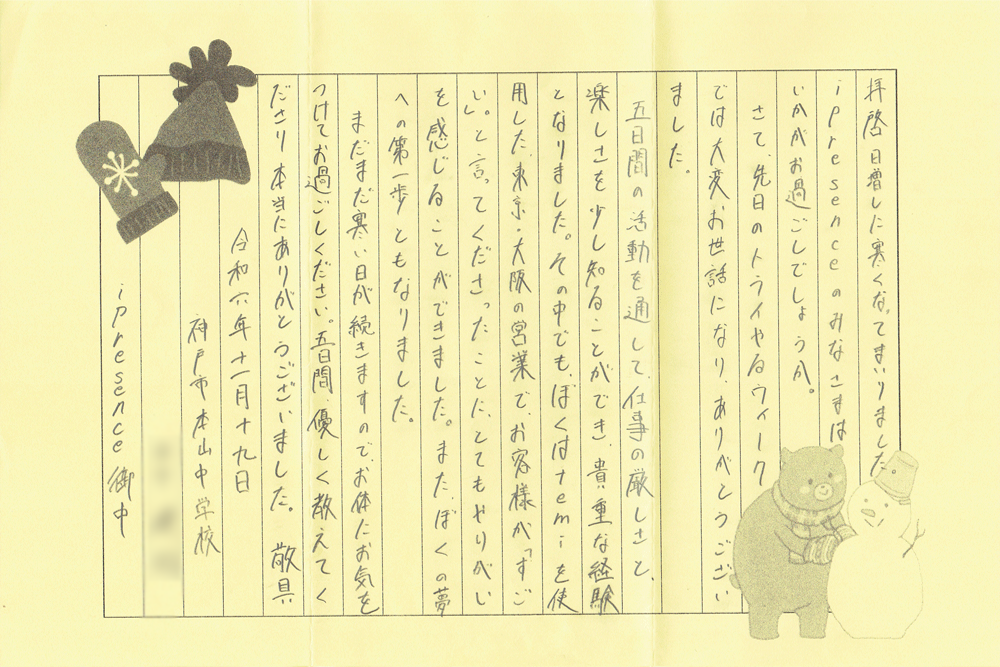 拝啓 日増しに寒くなってまいりました
ipresenceのみなさまは
いかがお過ごしでしょうか。
さて、先日のトライやるウィーク
では大変お世話になり、ありがとうござい
ました。
五日間の活動を通して、仕事の厳しさと、
楽しさを少し知ることができ、貴重な経験
となりました。その中でも、ぼくはtemiを使
用した、東京・大阪の営業で、お客様が「すご
い」と言ってくださったことに、とてもやりがい
を感じることができました。また、ぼくの夢
への第一歩ともなりました。
まだまだ寒い日が続きますので、お体にお気を
つけてお過ごしください。五日間、優しく教えてく
ださり本当にありがとうございました。 敬具
令和六年十一月十九日
神戸市本山中学校
ipresence御中